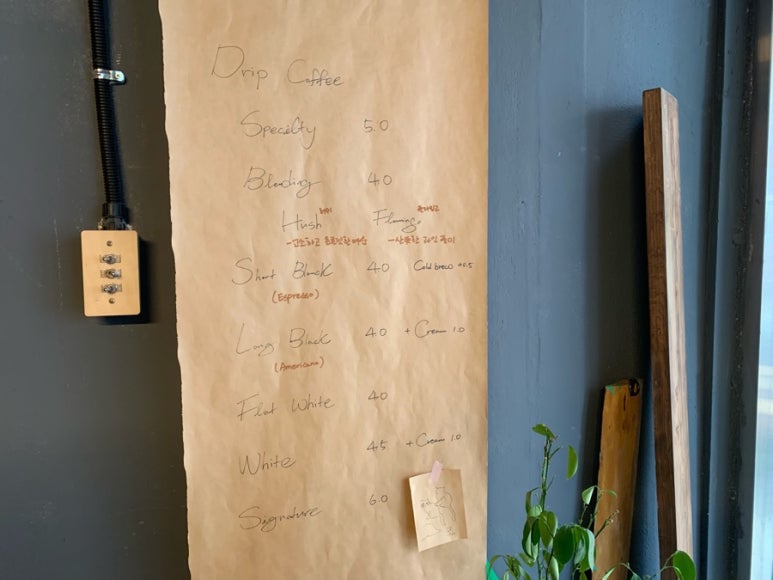 Drip Coffee
Specialty 5.0
Blending 4.0
Hush 허쉬 Flamingo 플라밍고
-고소하고 묵직한 여운 -산뜻한 과일 풍미
Short Black 4.0 Cold brew +0.5
(Espresso)
Long Black 4.0 + Cream 1.0
(Americano)
Flat White 4.0
White 4.5 + Cream 1.0
Signature 6.0